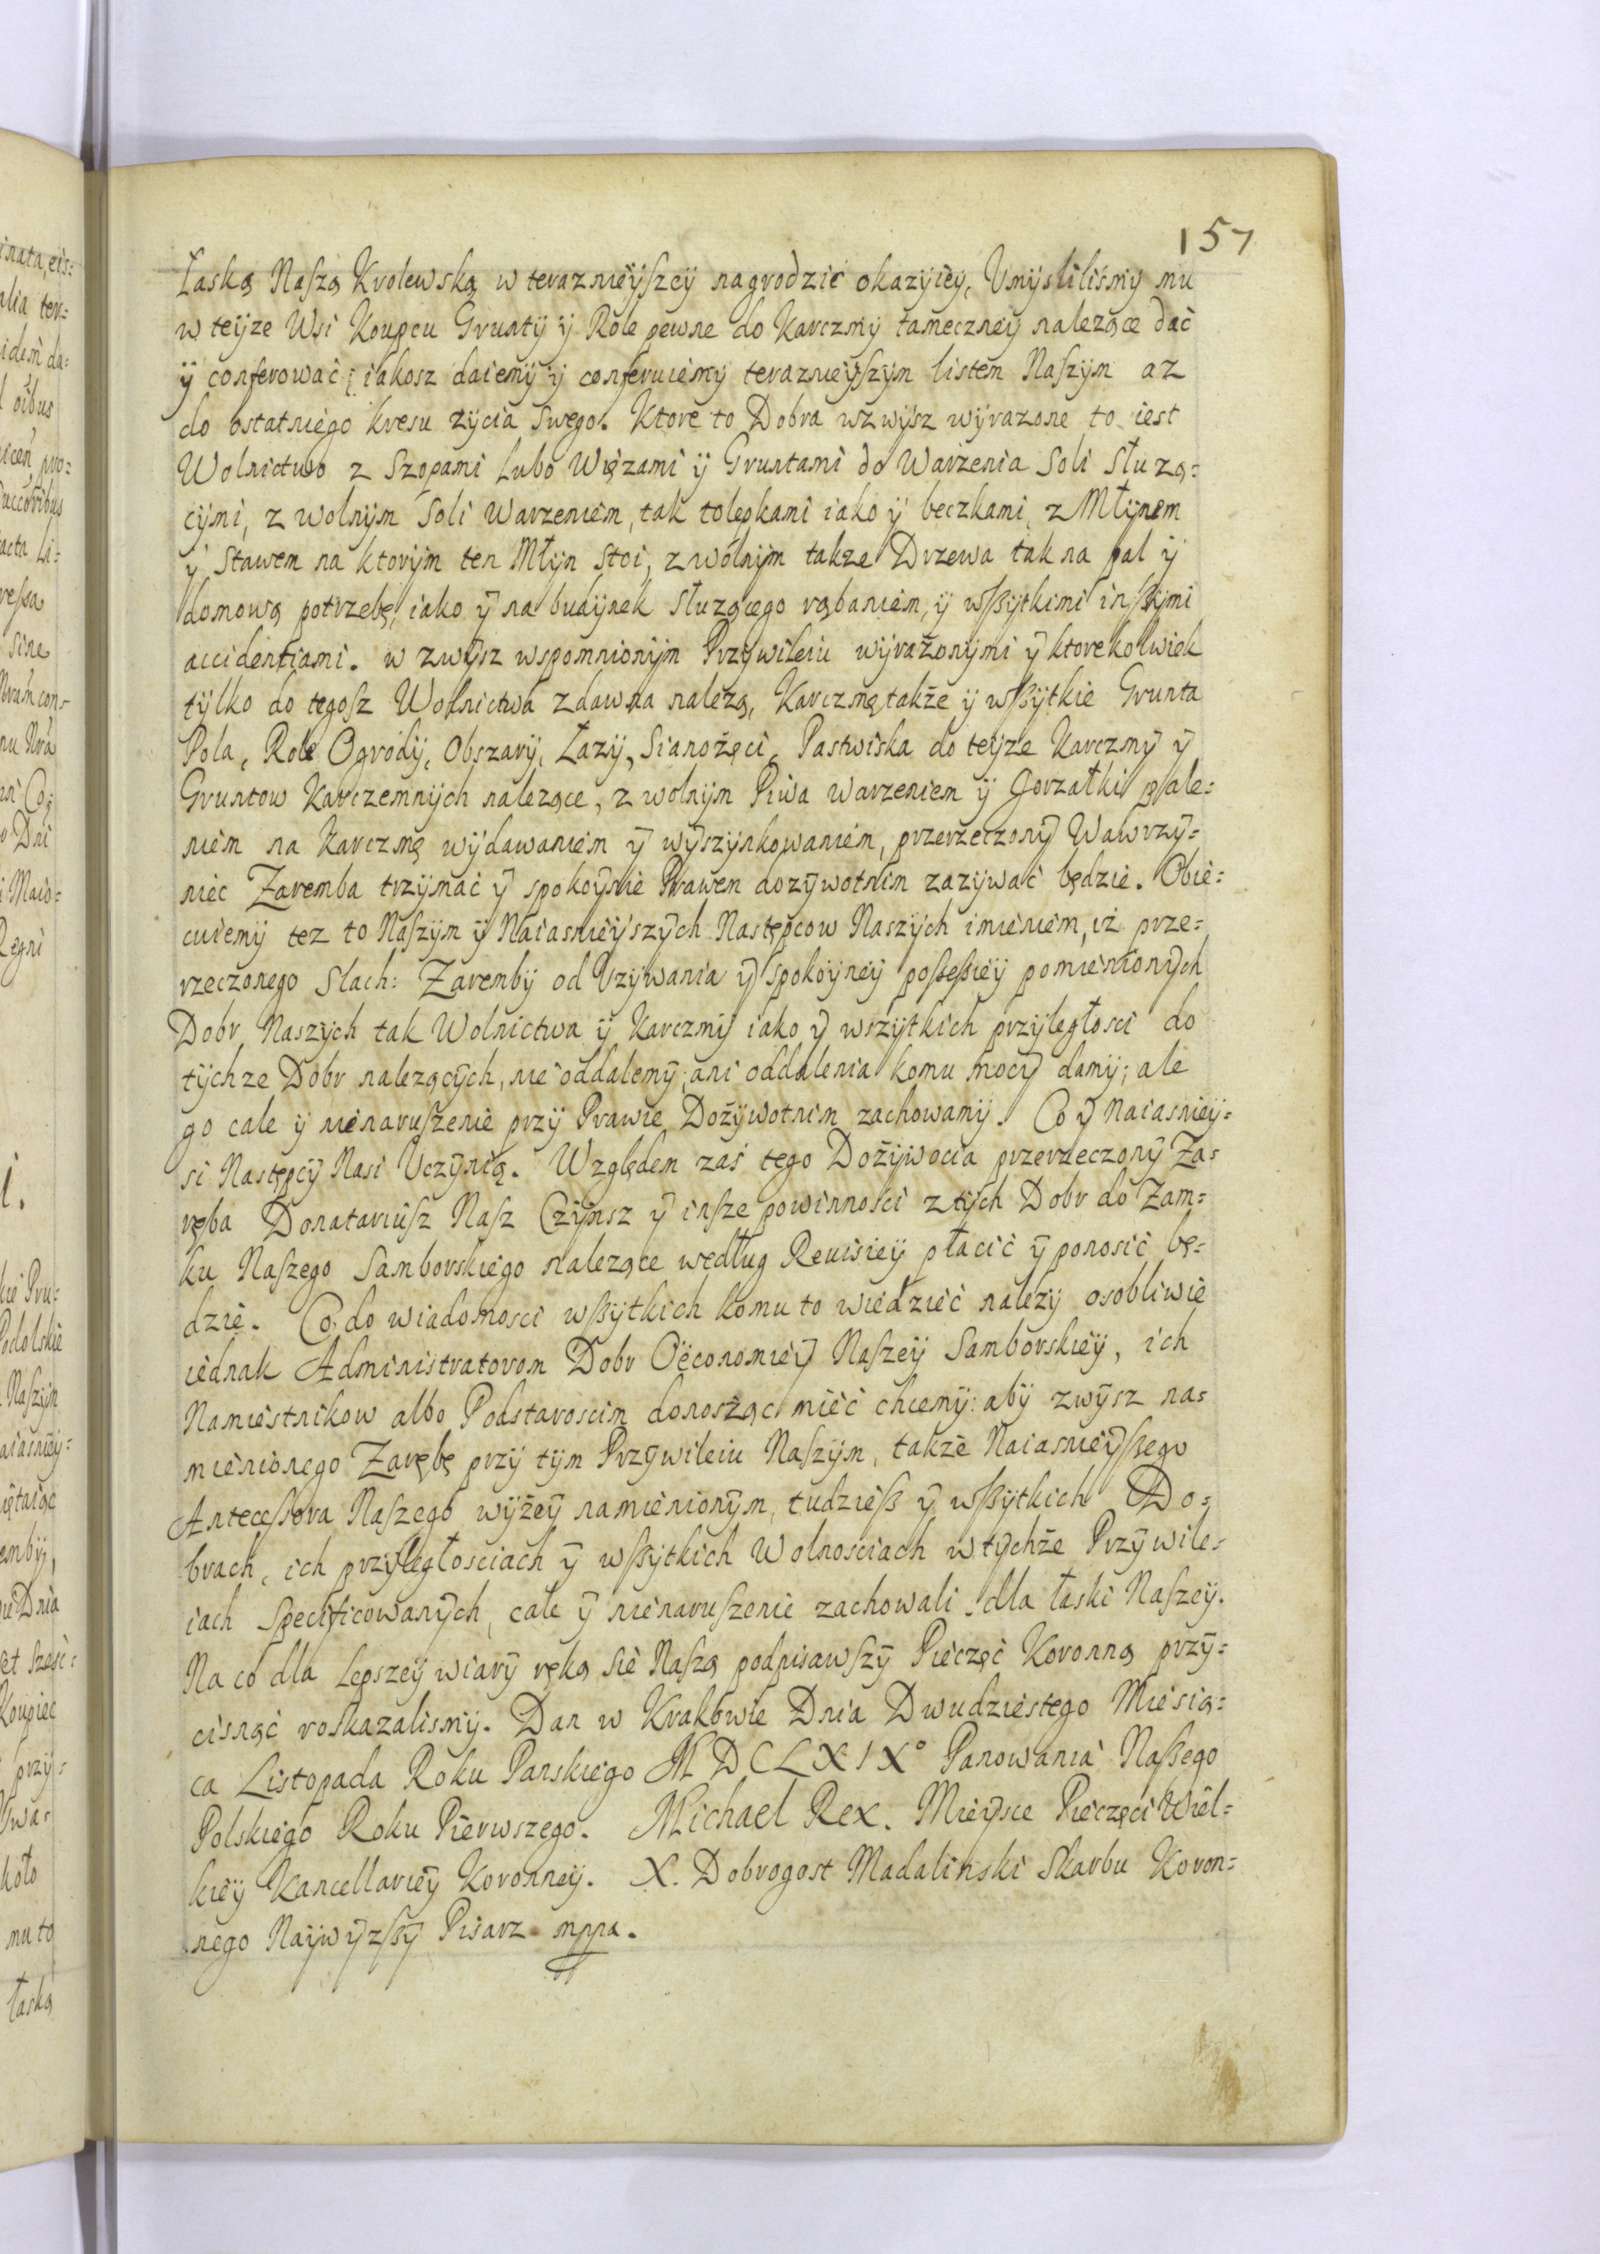 157
Łaską Naszą Krolewską w teraznieyszey nagrodzić okazyiey, Umysliliśmy mu
w teyze Wsi Koupcu Grunty y Role pewne do Karczmy tameczney nalezące dać
y conferować; iakosz daiemy y conferuiemy teraznieyszym listem Naszym az
do ostatniego kresu zycia swego. Ktore to Dobra wzwysz wyrazone to iest
Wolnictwo z Szopami lubo Wiązami y Gruntami do Warzenia Soli Słuzą=
cymi, z wolnym Soli Warzeniem, tak tolepkami iako y beczkami, z Młynem
y Stawem na ktorym ten Młyn Stoi, z wolnym takze Drzewa tak na pal y
domową potrzebę, iako y na budynek słuzącego rąbaniem, y wszytkimi inszymi
accidentiami. w zwysz wspomnionym Przywileiu wyrażonymi y ktorekolwiek
tylko do tegosz Wolnictwa zdawna nalezą, Karczmę także y wszytkie Grunta
Pola, Role Ogrody, Obszary, Łazy, Sianożęci, Pastwiska do teyze Karczmy y
Gruntow Karczemnych nalezące, z wolnym Piwa warzeniem y Gorzałki pale=
niem na Karczmę wydawaniem y wyszynkowaniem, przerzeczony Wawrzy=
niec Zaremba trzymać y spokoynie Prawem dozywotnim zazywać będzie. Obie=
cuiemy tez to Naszym y Naiasnieyszych Następcow Naszych imieniem, iż prze=
rzeczonego Slach: Zaremby od Uzywania y spokoyney possessiey pomienionych
Dobr Naszych tak Wolnictwa y Karczmy iako y wszytkich przyległosci do
tychze Dobr nalezących, nie oddalemy, ani oddalenia komu mocy damy; ale
go cale y nienaruszenie przy Prawie Dożywotnim zachowamy. Co y Naiasniey=
si Następcy Nasi Uczynią. Względem zaś tego Dożywocia przerzeczony Za=
ręba Donatariusz Nasz Czynsz y insze powinności z tych Dobr do Zam=
ku Naszego Samborskiego nalezące według Rewisiey płacić y ponosić bę=
dzie. Co do wiadomosci wszytkich komu to wiedzieć nalezy osobliwie
iednak Administratorom Dobr Oeconomiey Naszey Samborskiey, ich
Namiestnikow albo Podstaroscim donosząc mieć chcemy: aby zwysz na=
mienionego Zarębę przy tym Przywileiu Naszym, także Naiasnieyszego
Antecessora Naszego wyżey namienionym, tudziesz y wszytkich Do=
brach, ich przyległosciach y wszytkich Wolnosciach w tychże Przywile=
iach specificowanych, cale y nienaruszenie zachowali, dla łaski Naszey.
Na co dla lepszey wiary ręką się Naszą podpisawszy Pieczęć Koronną przy=
cisnąć roskazalismy. Dan w Krakowie Dnia Dwudziestego Miesią=
ca Listopada Roku Panskiego MDCLXIXº Panowania Naszego
Polskiego Roku Pierwszego. Michael Rex. Mieysce Pieczęci Wiel=
kiey Kancellariey Koronney. X. Dobrogost Madalinski Skarbu Koron=
nego Naywyzszy Pisarz mppa.